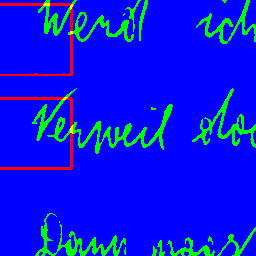 Werd ich
Verweil doc
Dann mags